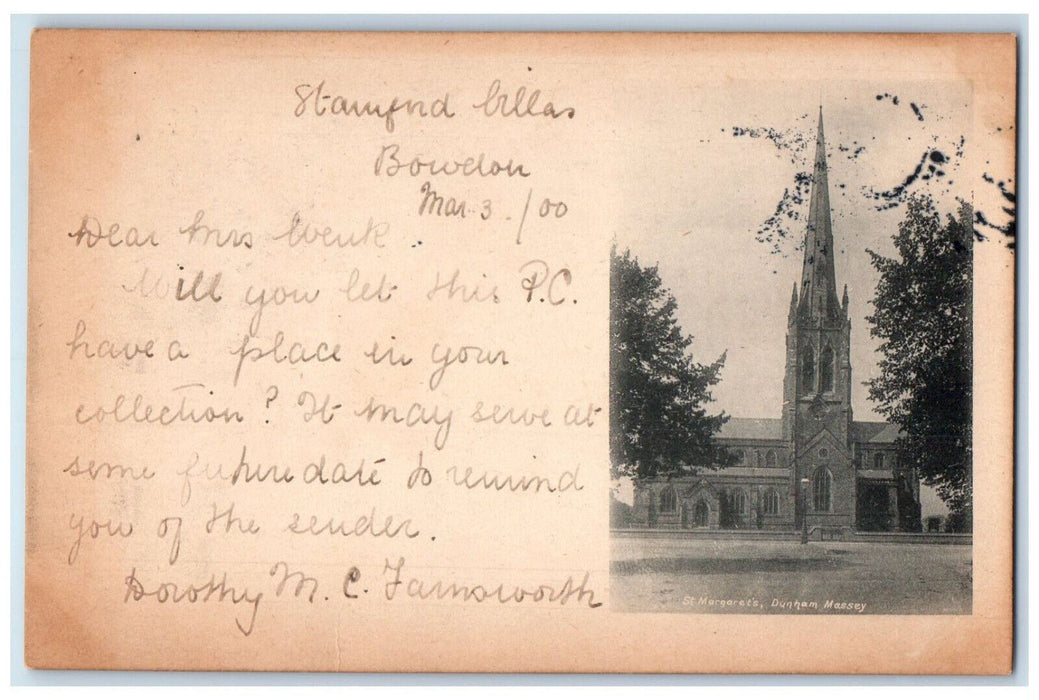 Stamford Villas
Bowdon
Mar 3./00
Dear Mrs Wenk.
Will you let this P.C.
have a place in your
collection? It may serve at
some future date to remind
you of the sender.
Dorothy M. C. Farnsworth
St Margaret's, Dunham Massey